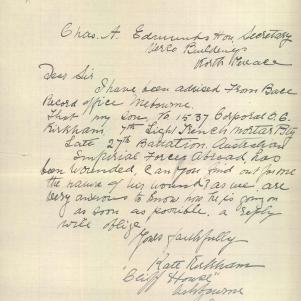 Chas. A. Edmunds Hon. Secretary
Verco Buildings
North Terrace
Dear Sir
I have been advised From Base
Record office Melbourne.
That my son, No 1537 Corporal O.C.
Kirkham 7th Light Trench Mortar Bty
Late 27th Battalion. Australian
Imperial Forces Abroad, has
been wounded, Can you find out for me
the nature of his wounds as we are
very anxious to know how he is going on
as soon as possible, a reply
will oblige
Yours faithfully
Kate Kirkham
"Cliff House"
Ashbourne